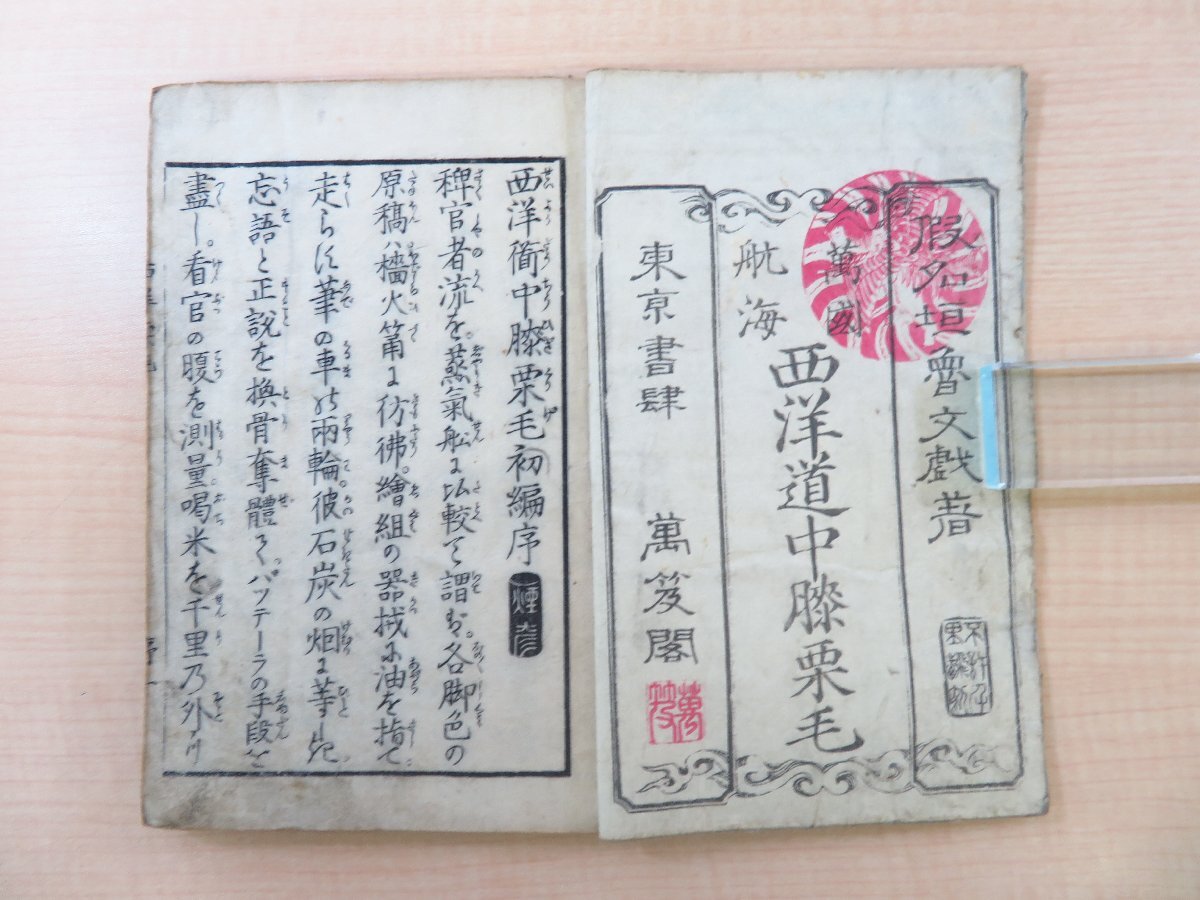 假名垣魯文戲著
萬國
航海
西洋道中膝栗毛
東京書肆
萬笈閣
萬笈
西洋衜中膝栗毛初編序
稗官者流を。蒸氣舩に比較て謂ば。各脚色の
原稿ハ檣火筩に彷彿。繪組の器械に油を指て
走らす筆の車の兩輪彼石炭の烟に等しく
忘語と正説を換骨奪體て。バッテーラの手段を
盡し。看官の腹を測量喝米を千里乃外